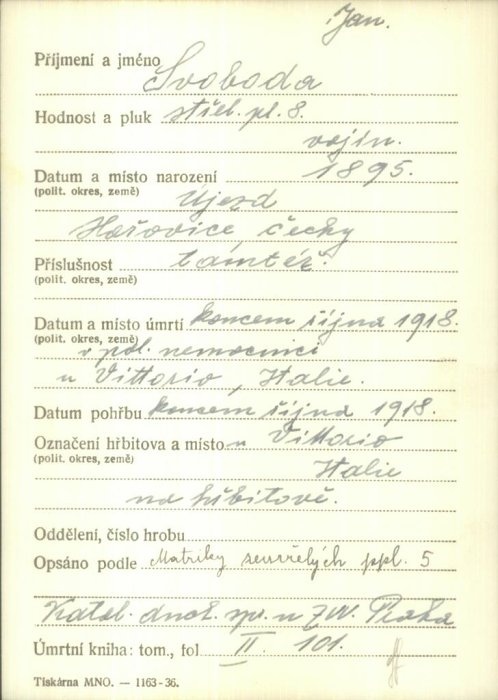 Jan.
Příjmení a jméno Svoboda
Hodnost a pluk střel. pl. 8.
vojín.
Datum a místo narození 1895.
(polit. okres, země) Újezd
Hořovice, Čechy
Příslušnost tamtéž.
(polit. okres, země)
Datum a místo úmrtí koncem října 1918.
(polit. okres, země) v pol. nemocnici
u Vittorio, Italie.
Datum pohřbu koncem října 1918.
Označení hřbitova a místo u Vittorio
(polit. okres, země) Italie
na hřbitově.
Oddělení, číslo hrobu
Opsáno podle Matriky zemřelých ppl. 5
Katol. duch. sp. u ZVV. Praha
Úmrtní kniha: tom., fol II. 101.
Tiskárna MNO. — 1163-36.